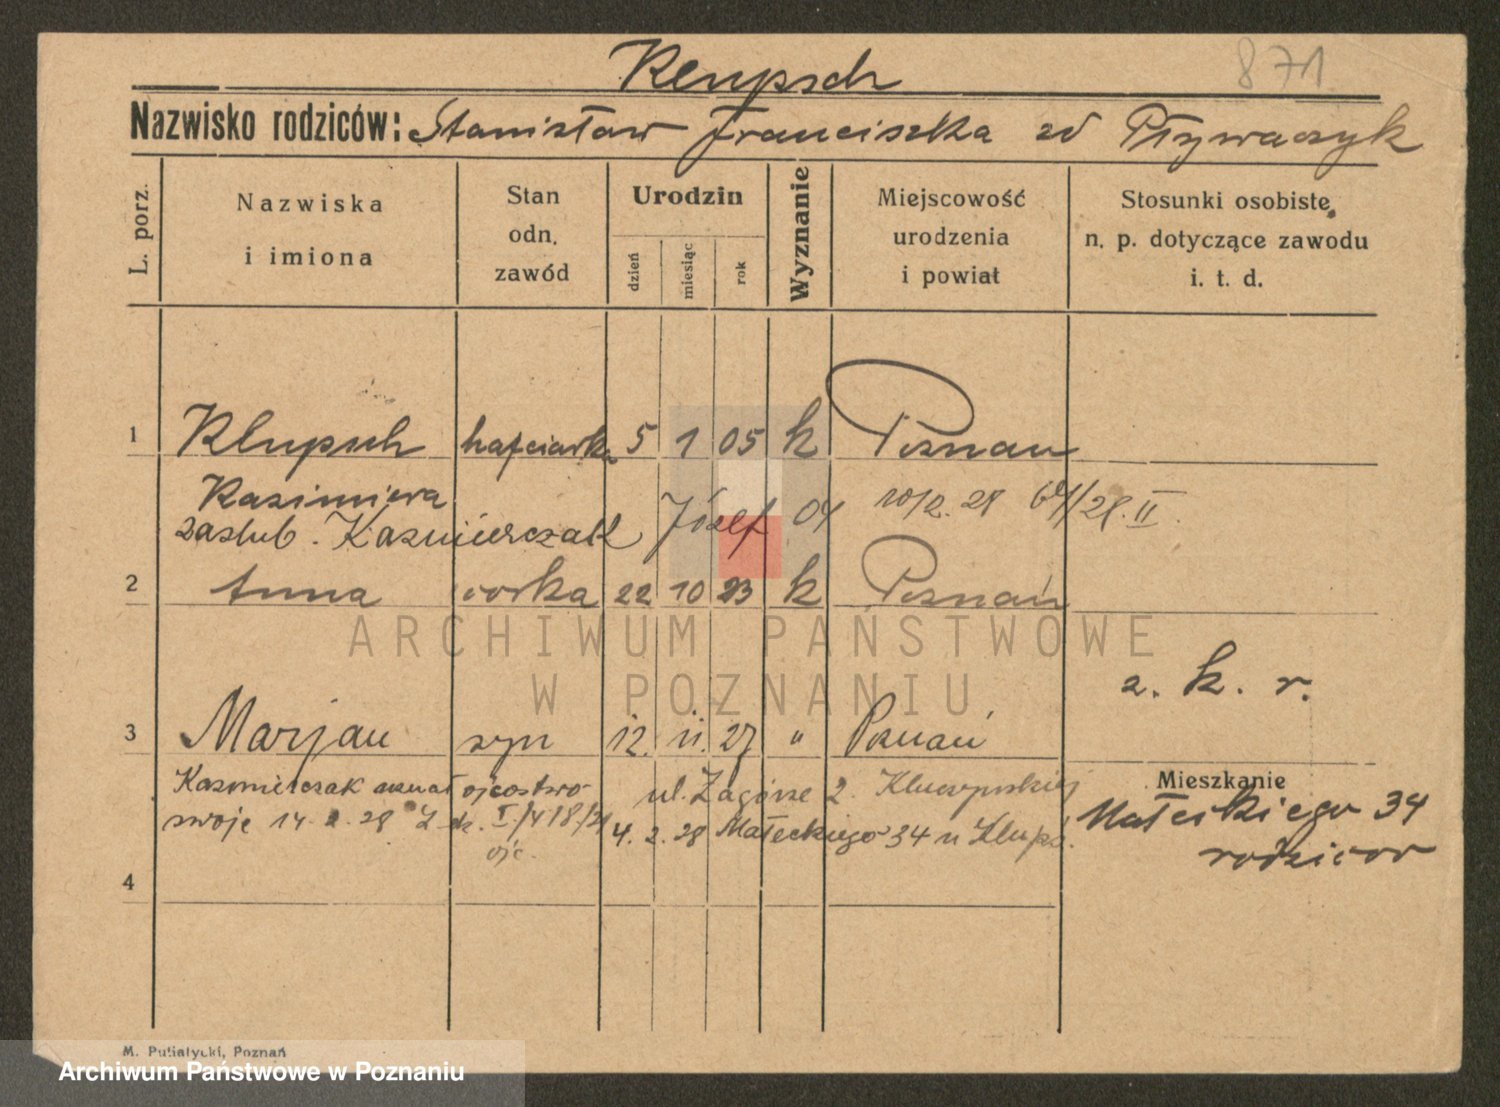 Klupsch
871
Nazwisko rodziców: Stanisław Franciszka zd Pływaczyk
L. porz.
Nazwiska i imiona
Stan odn. zawód
Urodzin
dzień
miesiąc
rok
Wyznanie
Miejscowość urodzenia i powiat
Stosunki osobiste n. p. dotyczące zawodu i. t. d.
1 Klupsch hafciarka 5 1 05 k Poznań
Kazimiera
zaślub. Kaźmierczak Józef 04 10/2. 28 /28. II
2 Anna córka 22 10 23 k Poznań
ARCHIWUM PAŃSTWOWE
W POZNANIU
z. k. r.
3 Marjan syn 12. 11. 27 " Poznań
Kaźmierczak uznał ojcostwo ul. Zagórze 2.
swoje 14. 2. 28 4. 2. 28 Małeckiego 34 u Klups.
Mieszkanie
Małeckiego 34
rodziców
4
M. Putiatycki, Poznań
Archiwum Państwowe w Poznaniu